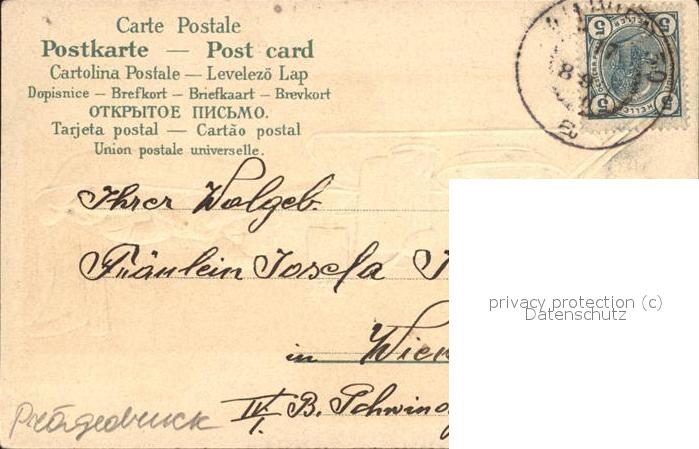 Carte Postale
Postkarte — Post card
Cartolina Postale — Levelező Lap
Dopisnice — Brefkort — Briefkaart — Brevkort
ОТКРЫТОЕ ПИСЬМО.
Tarjeta postal — Cartão postal
Union postale universelle.
5 5
5 5
HELLER
Ihrer Wolgeb.
Fräulein Josefa
privacy protection (c)
Datenschutz
in Wien
IV. B.
Prägedruck